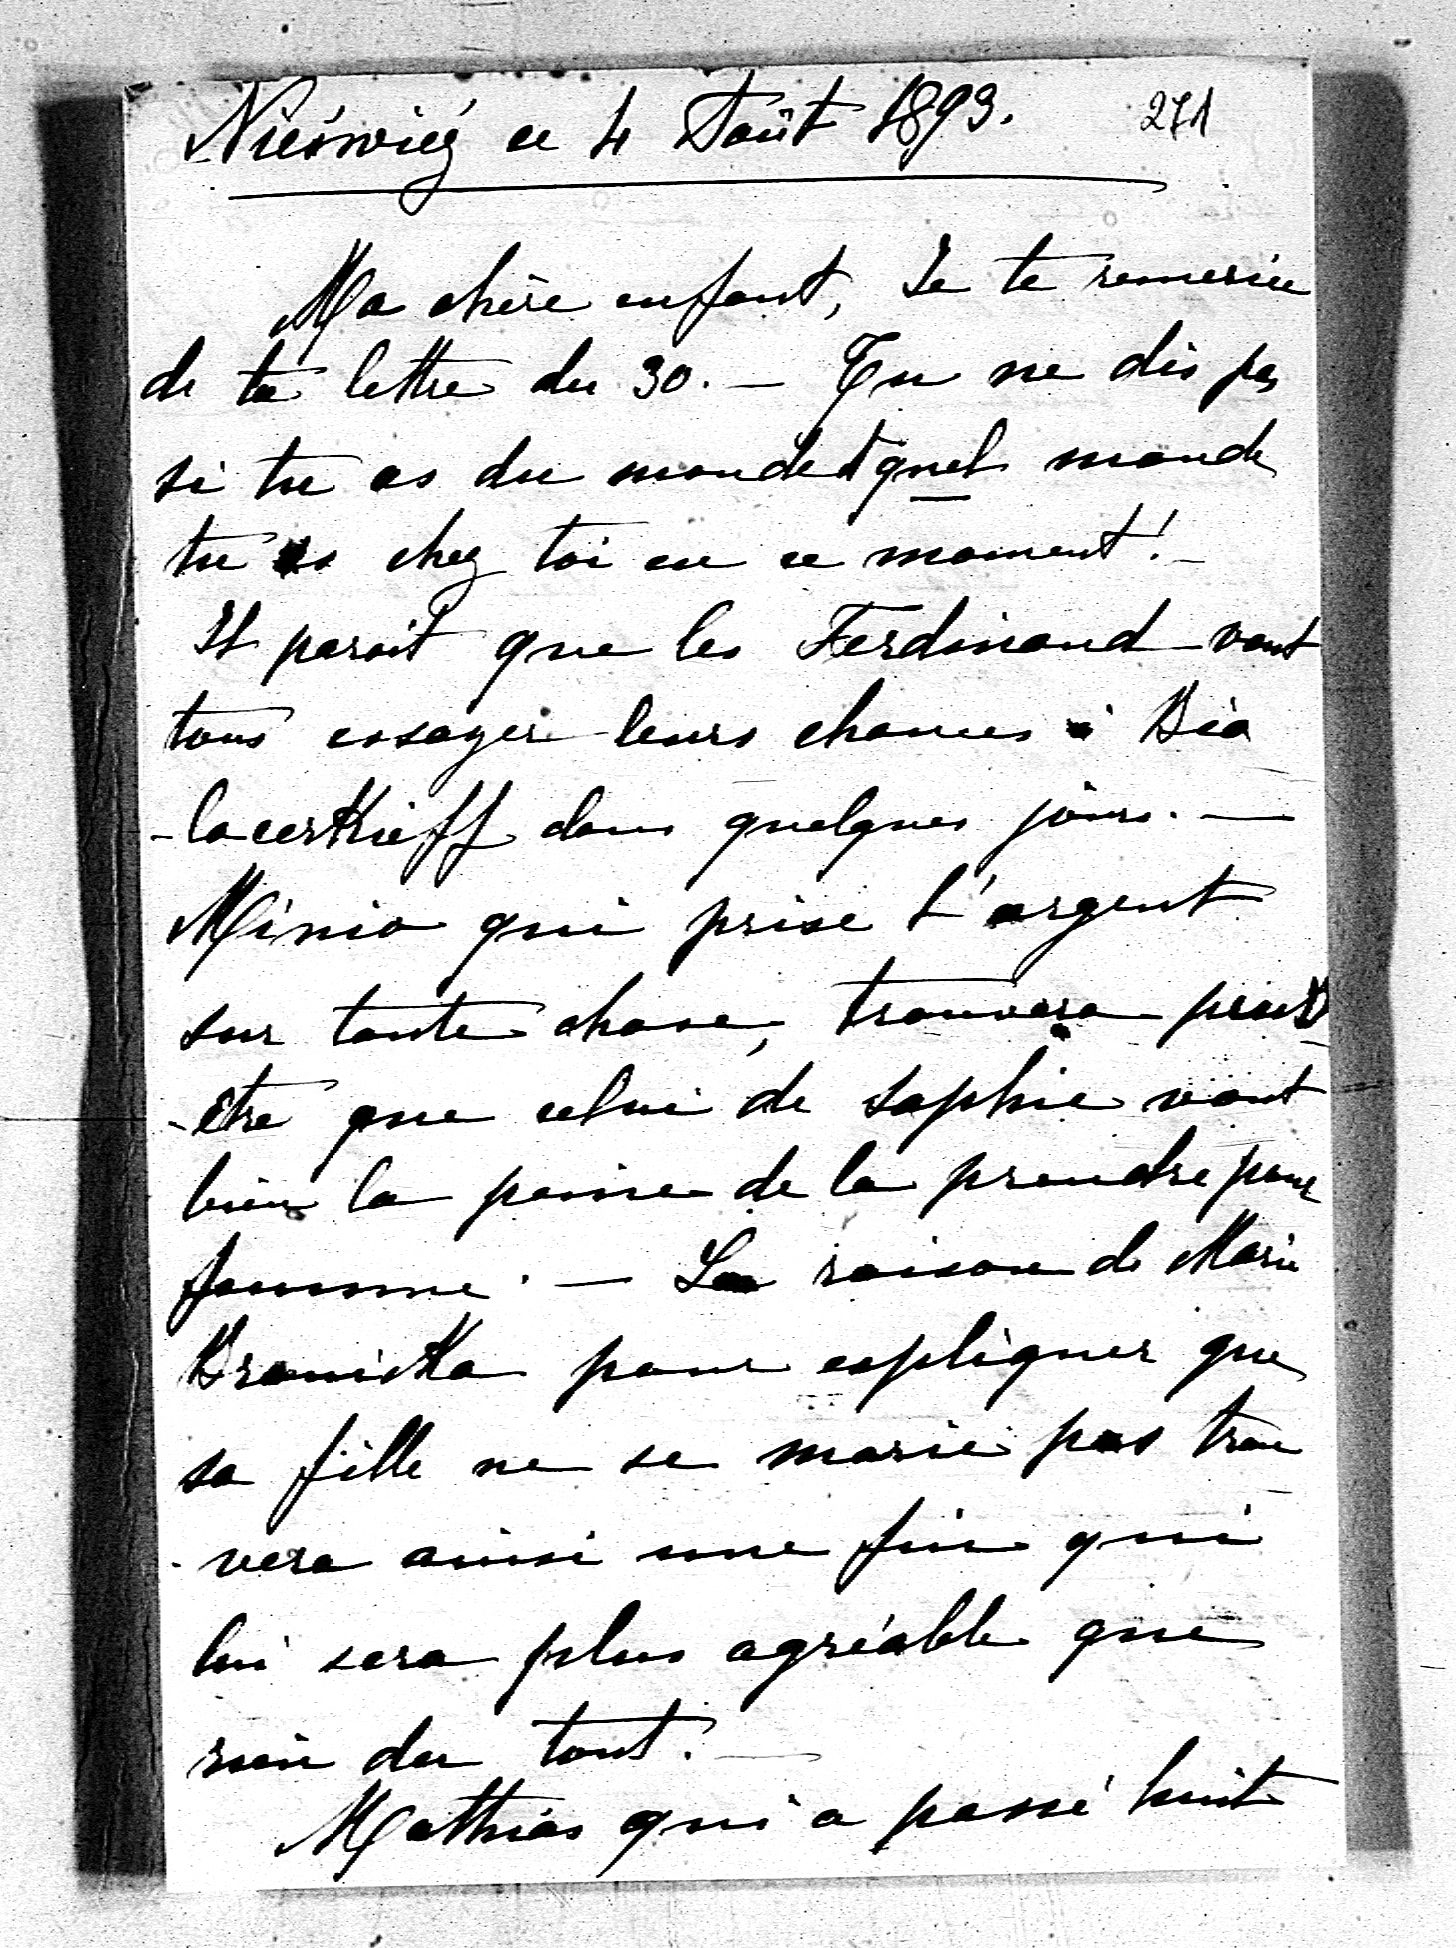 Nieświéz ce 4 Août 1893. 271
Ma chère enfant, Je te remercie
de ta lettre du 30. — Tu ne dis pas
si tu as du monde et quel monde
tu as chez toi en ce moment! —
Il parait que les Ferdinand vont
tous essayer leurs chances à Bia
-lacerkieff dans quelques jours. —
Minio qui prise l'argent
sur toute chose, trouvera peut
-être que celui de Sophie vaut
bien la peine de la prendre pour
femme. — La raison de Marie
Branicka pour expliquer que
sa fille ne se marie pas trou
-vera ainsi une fin qui
lui sera plus agréable que
rien du tout. —
Mathias qui a passé huit